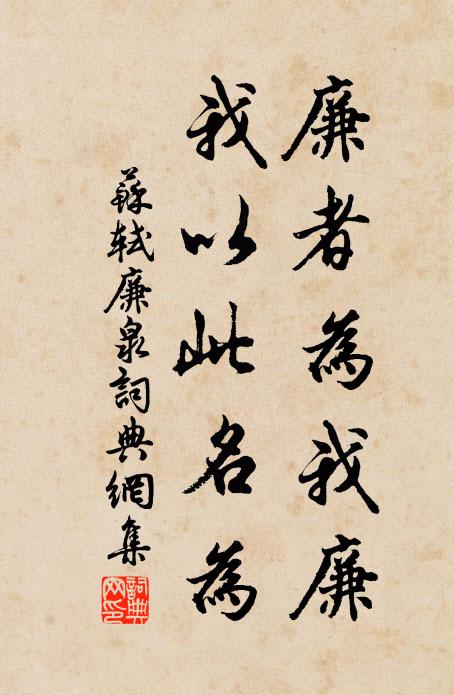 廉者為我廉
我以此名為
蘇軾廉泉詞典網集
詞典
网印